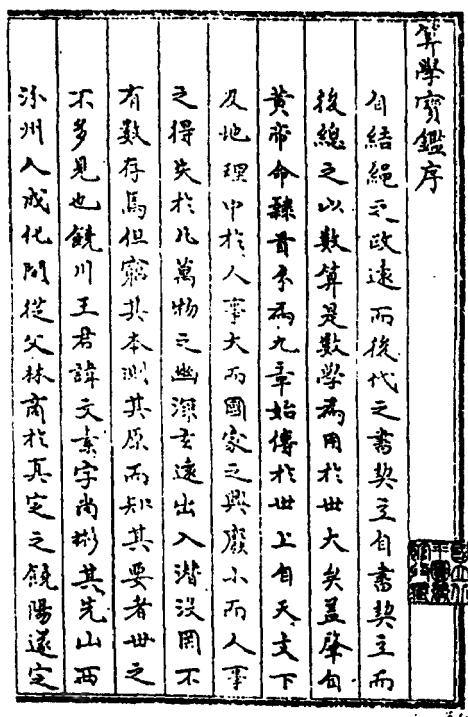 算學寳鑑序
自結䋲之政遠而後代之書契立自書契立而
後總之以數算是數學為用於世大矣蓋肇自
黄帝命隸首分為九章始傳於世上自天文下
及地理中於人事大而國家之興廢小而人事
之得失於凡萬物之幽深玄遠出入潜没罔不
有数存焉但窮其本測其原而知其要者世之
不多見也饒川王君諱文素字尚彬其先山西
汾州人成化間從父林商於真定之饒陽遂定